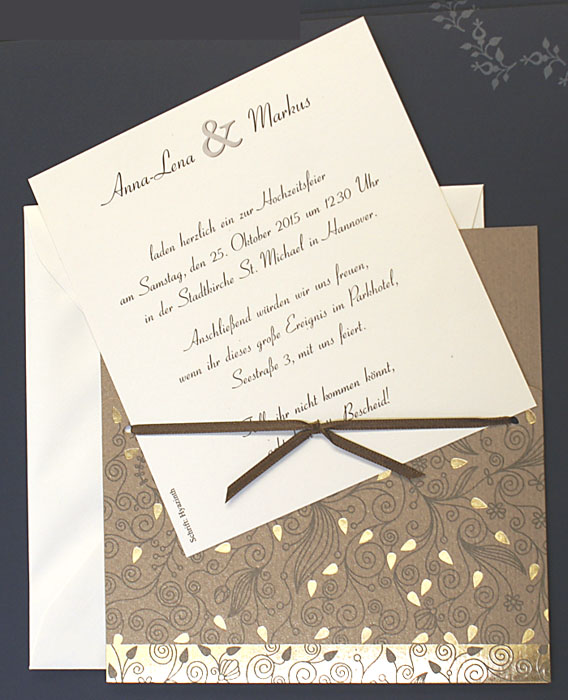 Anna-Lena & Markus
laden herzlich ein zur Hochzeitsfeier
am Samstag, den 25. Oktober 2015 um 12.30 Uhr
in der Stadtkirche St. Michael in Hannover.
Anschließend würden wir uns freuen,
wenn ihr dieses große Ereignis im Parkhotel,
Seestraße 3, mit uns feiert.
ihr nicht kommen könnt,
Bescheid!
Schrift: Hyazinth